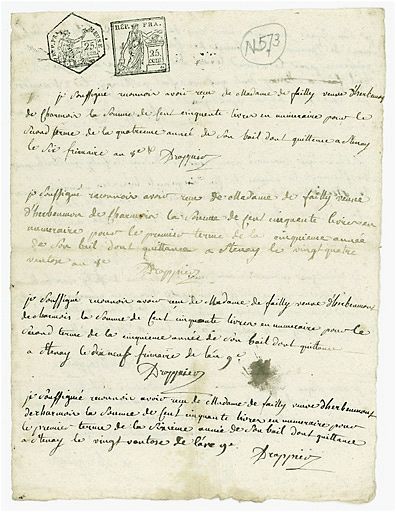 RÉP. FRA.
25 cen
25 cen
N 573
je soussigné reconnoir avoir reçu de Madame de failly veuve d'herbemon
de charmoir la Somme de Cent cinquante livres en numeraire pour le
Second terme de la quatrieme année de Son bail dont quittance a Stenay
le Six frimaire an 9e Drappier
je soussigné reconnoir avoir reçu de Madame de failly veuve
d'herbemon de charmoir la Somme de Cent cinquante livres en
numeraire pour le premier terme de la cinquieme année
de Son bail dont quittance a Stenay le vingt quatre
ventose an 9e
Drappier
je soussigné reconnoir avoir reçu de Madame de failly veuve d'herbemon
de charmoir la Somme de Cent cinquante livres en numeraire pour le
Second terme de la cinquieme année de Son bail dont quittance
a Stenay le dixneuf frimaire de l'an 9e
Drappier
je soussigné reconnoir avoir reçu de Madame de failly veuve d'herbemon
de charmoir la Somme de Cent cinquante livres en numeraire pour
le premier terme de la Sixieme année de Son bail dont quittance
a Stenay le vingt ventose de l'an 9e
Drappier